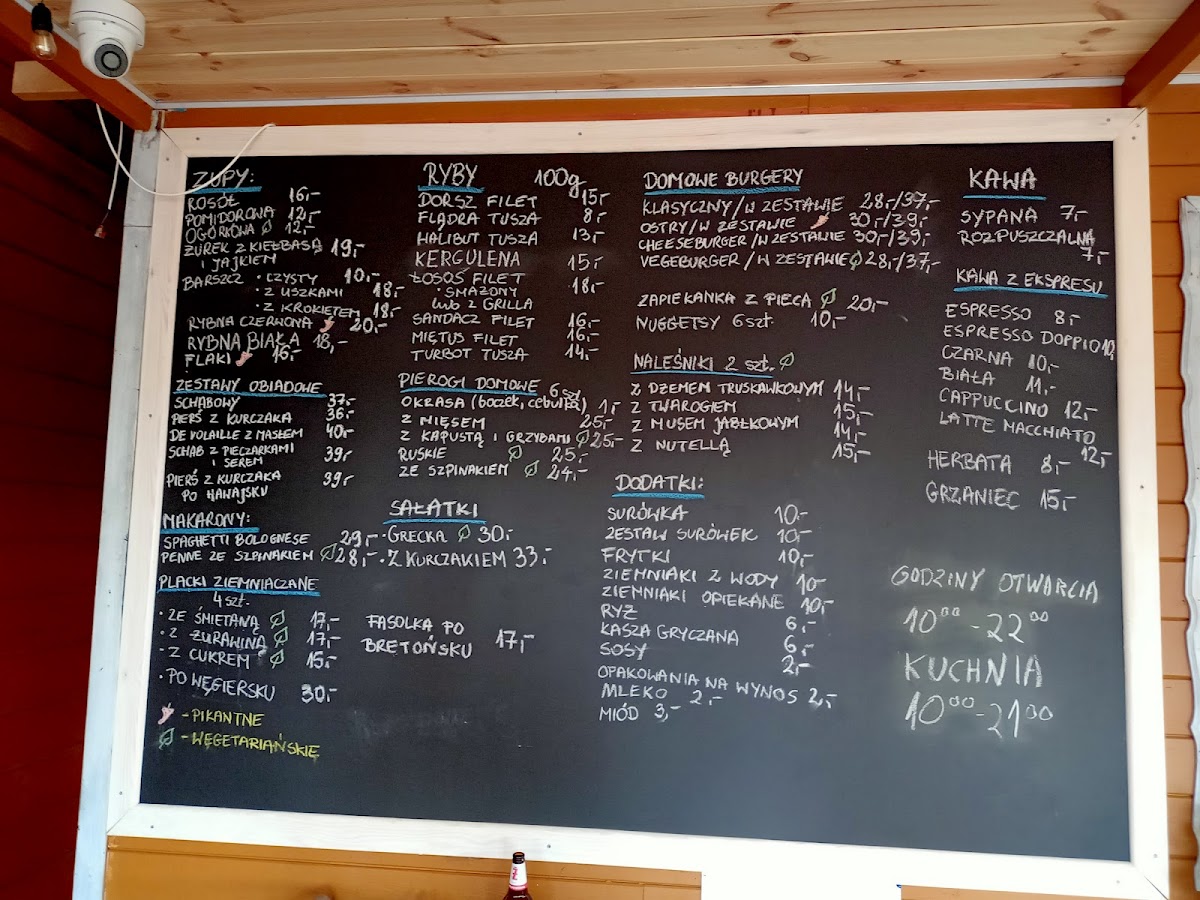 ZUPY:
ROSÓŁ 16,-
POMIDOROWA 12,-
OGÓRKOWA 12,-
ŻUREK Z KIEŁBASĄ 19,-
I JAJKIEM
BARSZCZ • CZYSTY 10,-
• Z USZKAMI 18,-
• Z KROKIETEM 18,-
RYBNA CZERWONA 20,-
RYBNA BIAŁA 18,-
FLAKI 16,-
ZESTAWY OBIADOWE
SCHABOWY 37,-
PIERŚ Z KURCZAKA 36,-
DE VOLAILLE Z MASŁEM 40,-
SCHAB Z PIECZARKAMI 39,-
I SEREM
PIERŚ Z KURCZAKA 39,-
PO HAWAJSKU
MAKARONY:
SPAGHETTI BOLOGNESE 29,-
PENNE ZE SZPINAKIEM 28,-
PLACKI ZIEMNIACZANE
4 szt.
• ZE ŚMIETANĄ 17,-
• Z ŻURAWINĄ 17,-
• Z CUKREM 15,-
• PO WĘGIERSKU 30,-
- PIKANTNE
- WĘGETARIAŃSKIĘ
RYBY 100g
DORSZ FILET 15,-
FLĄDRA TUSZA 8,-
HALIBUT TUSZA 13,-
KERGULENA 15,-
ŁOSOŚ FILET 18,-
• SMAŻONY
lub Z GRILLA
SANDACZ FILET 16,-
MIĘTUS FILET 16,-
TURBOT TUSZA 14,-
PIEROGI DOMOWE 6 szt
OKRASA (boczek, cebulka) 1,-
Z MIĘSEM 25,-
Z KAPUSTĄ I GRZYBAMI 25,-
RUSKIE 25,-
ZE SZPINAKIEM 24,-
SAŁATKI
• GRECKA 30,-
• Z KURCZAKIEM 33,-
FASOLKA PO
BRETOŃSKU 17,-
DOMOWE BURGERY
KLASYCZNY / W ZESTAWIE 28,-/37,-
OSTRY / W ZESTAWIE 30,-/39,-
CHEESEBURGER / W ZESTAWIE 30,-/39,-
VEGEBURGER / W ZESTAWIE 28,-/37,-
ZAPIEKANKA Z PIECA 20,-
NUGGETSY 6 szt. 10,-
NALEŚNIKI 2 szt.
Z DŻEMEM TRUSKAWKOWYM 14,-
Z TWAROGIEM 15,-
Z MUSEM JABŁKOWYM 14,-
Z NUTELLĄ 15,-
DODATKI:
SURÓWKA 10,-
ZESTAW SURÓWEK 10,-
FRYTKI 10,-
ZIEMNIAKI Z WODY 10-
ZIEMNIAKI OPIEKANE 10,-
RYŻ 6,-
KASZA GRYCZANA 6,-
SOSY 2,-
OPAKOWANIA NA WYNOS 2,-
MLEKO 2,-
MIÓD 3,-
KAWA
SYPANA 7,-
ROZPUSZCZALNA 7,-
KAWA Z EKSPRESU
ESPRESSO 8,-
ESPRESSO DOPPIO 10,
CZARNA 10,-
BIAŁA 11,-
CAPPUCCINO 12,-
LATTE MACCHIATO 12,-
HERBATA 8,-
GRZANIEC 15,-
GODZINY OTWARCIA
10⁰⁰-22⁰⁰
KUCHNIA
10⁰⁰-21⁰⁰